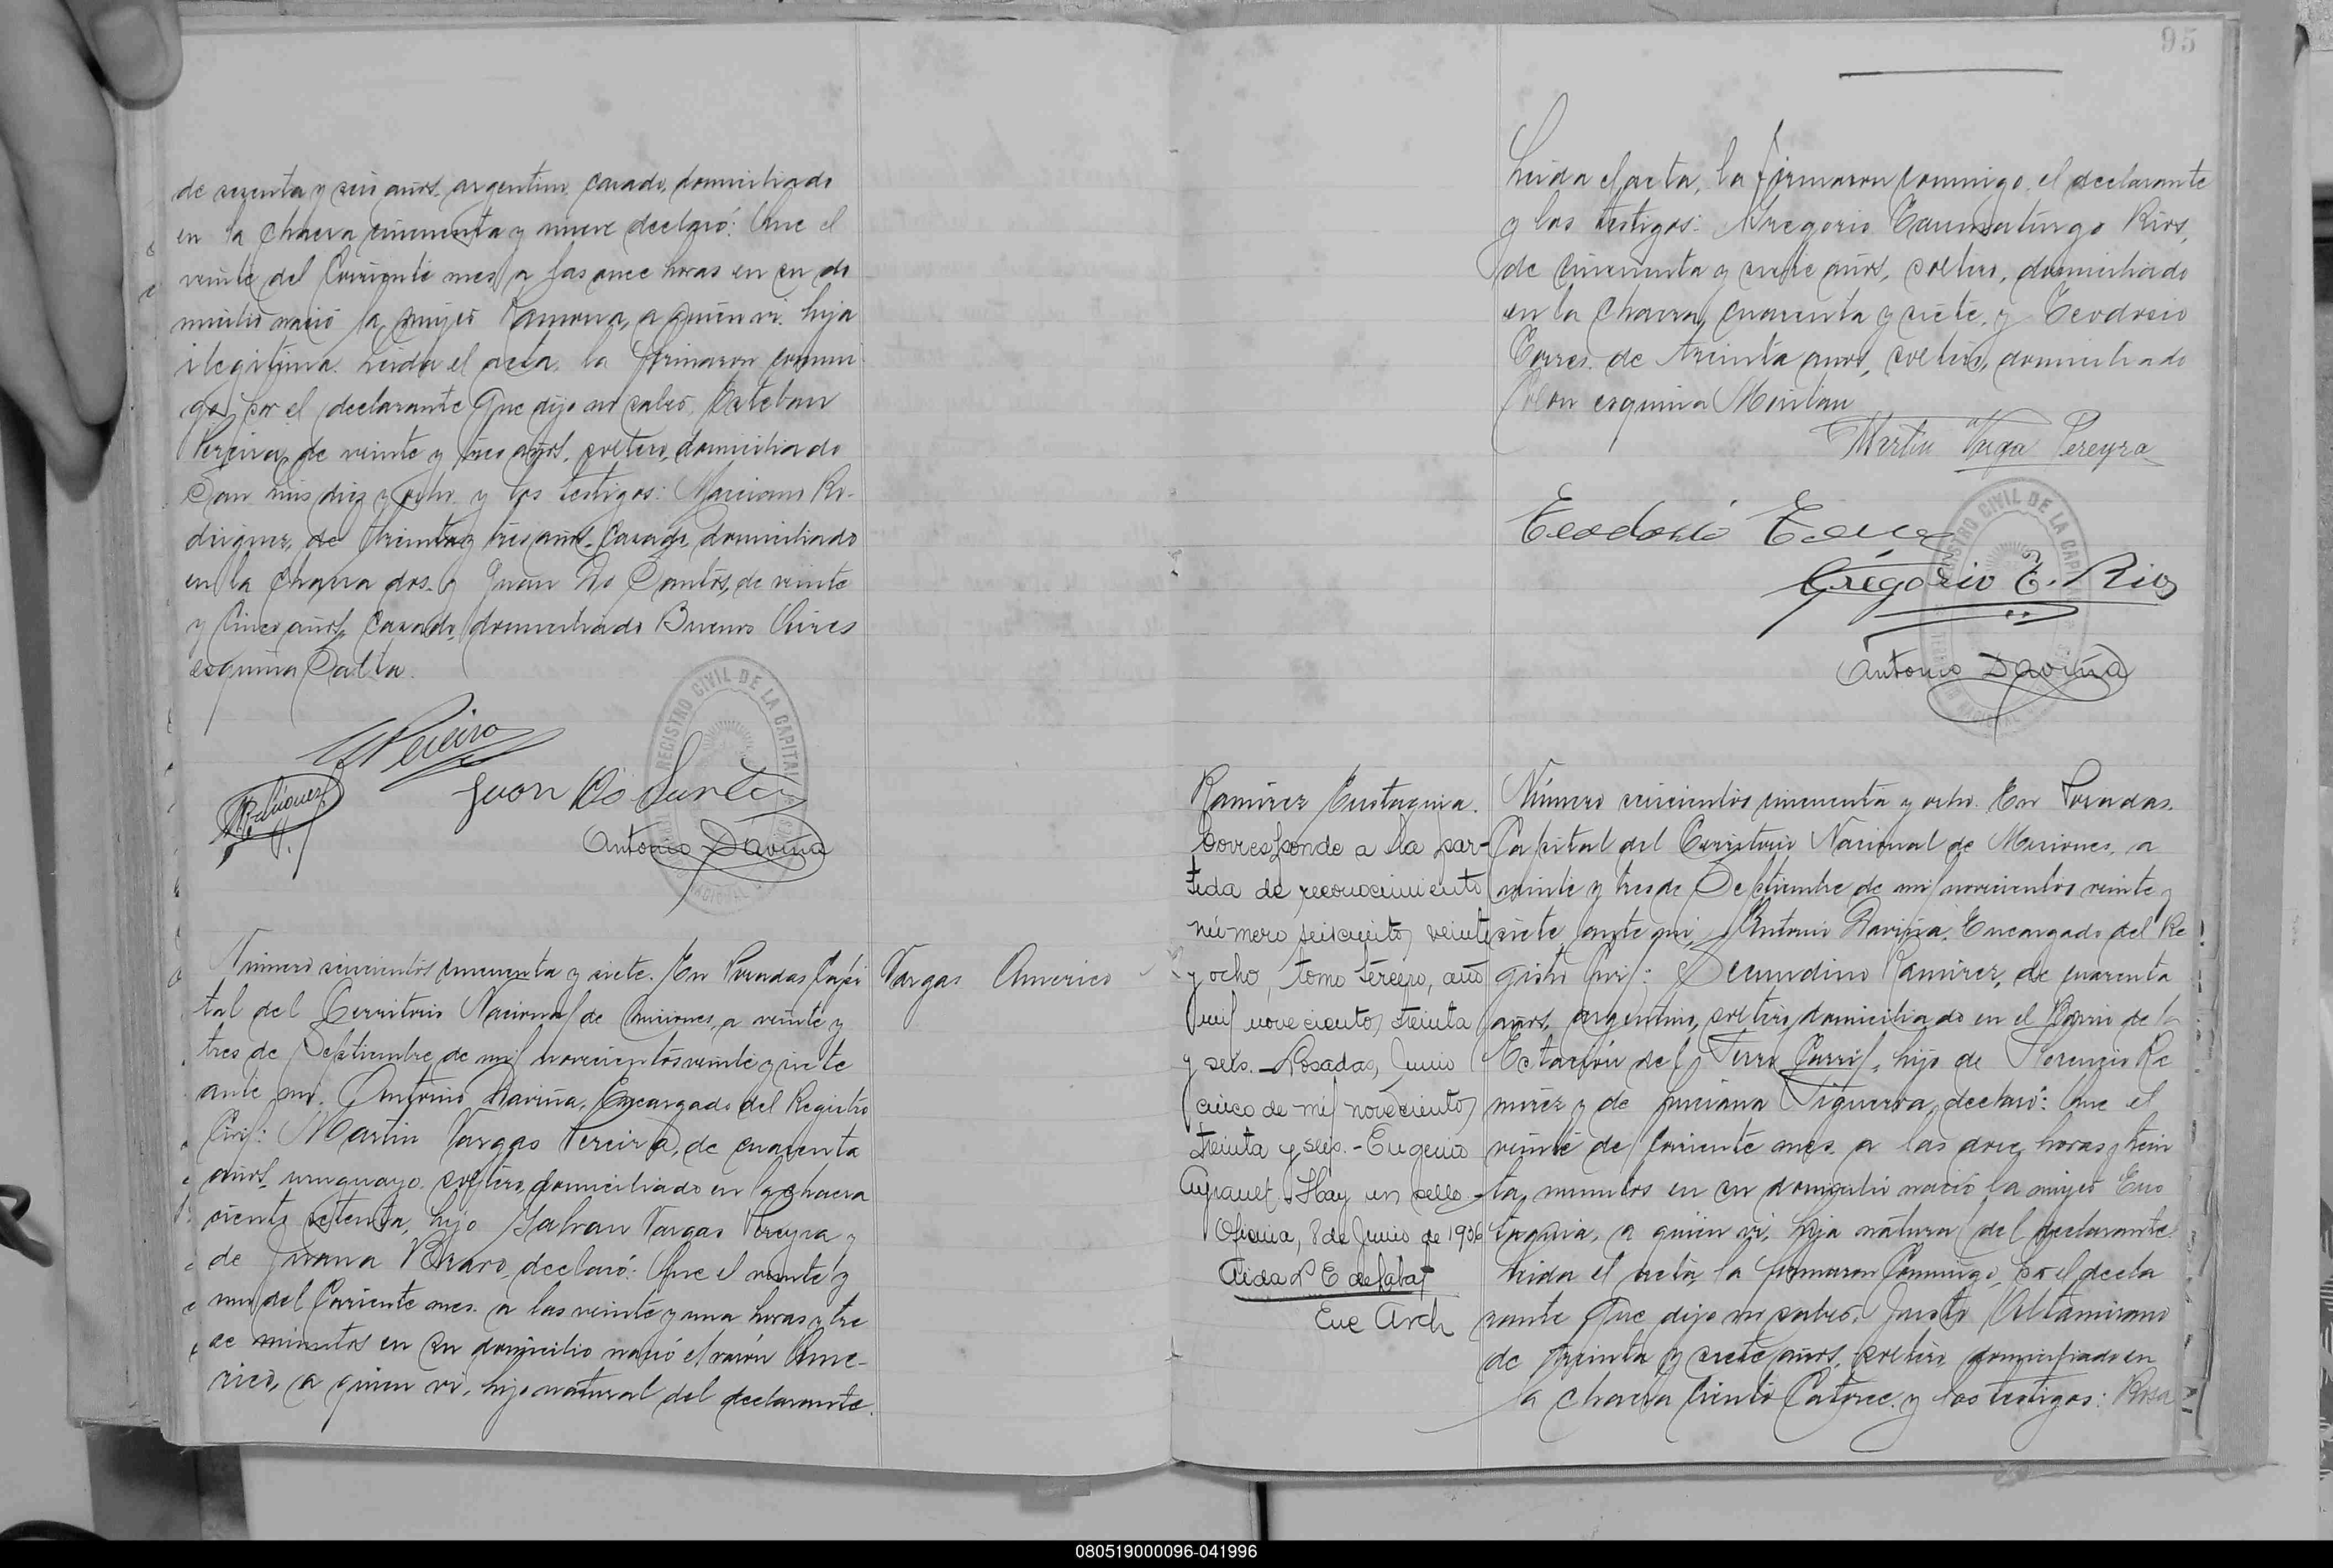 de sesenta y seis años, argentino, casado, domiciliado
en la chacra cincuenta y nueve declaró: Que el
veinte del corriente mes a las once horas en su do
micilio nació la mujer Ramona, a quien vi, hija
ilegítima. Leida el acta, la firmaron conmi
go, por el declarante que dijo no saber, Esteban
Pereira, de veinte y años, soltero, domiciliado
San Luis diez y ocho y los testigos: Marciano Ro-
driguez, de treinta y tres años, casado, domiciliado
en la chacra dos y Juan Do Santos, de veinte
y cinco años, casado, domiciliado Buenos Aires
esquina Salta.
EPereira
MRodriguez
Juan Do Santos
Antonio Daviña
REGISTRO CIVIL DE LA CAPITAL
Número seiscientos cincuenta y siete. En Posadas Capi
tal del Territorio Nacional de Misiones, a veinte y
tres de Septiembre de mil novecientos veinte y siete
ante mi, Antonio Daviña, Encargado del Registro
Civil: Martin Vargas Pereira, de cuarenta
años, uruguayo, soltero, domiciliado en la chacra
ciento setenta, hijo Galvan Vargas Pereyra y
de Juana Bravo, declaró: Que el veinte y
uno del corriente mes, a las veinte y una horas y tre
ce minutos en su domicilio nació el varón Ame-
rico, a quien vi, hijo natural del declarante.
Vargas Americo
95
Leida el acta, la firmaron conmigo, el declarante
y los testigos: Gregorio Taumaturgo Rios,
de cincuenta y siete años, soltero, domiciliado
en la chacra cuarenta y siete, y Teodosio
Torres, de treinta años, soltero, domiciliado
Colon esquina
Martin Varga Pereyra
Teodosio Torres
Gregorio T. Rios
Antonio Daviña
REGISTRO CIVIL DE LA CAPITAL
Ramirez Eustaquia.
Corresponde a la par-
tida de reconocimiento
número seiscientos veinte
y ocho, tomo tercero, año
mil novecientos treinta
y seis.- Posadas, Junio
cinco de mil novecientos
treinta y seis.- Eugenio
Ayrault. Hay un sello.
Oficina, 8 de Junio de 1936
Aida
Enc Arch
Número seiscientos cincuenta y ocho. En Posadas,
Capital del Territorio Nacional de Misiones, a
veinte y tres de Septiembre de mil novecientos veinte y
siete, ante mi, Antonio Daviña, Encargado del Re
gistro Civil: Secundino Ramirez, de cuarenta
años, argentino, soltero, domiciliado en el Barrio de la
Estación del Ferro Carril, hijo de Florencio Ra
mirez y de Figueroa, declaró: Que el
veinte de corriente mes a las doce horas y trein
ta minutos en su domicilio nació la mujer Eus
taquia, a quien vi, hija natural del declarante.
Leida el acta, la firmaron conmigo, por el decla
rante que dijo no saber, Justo Altamirano
de treinta y siete años, soltero, domiciliado en
la chacra ciento catorce y los testigos: Rosa
080519000096-041996